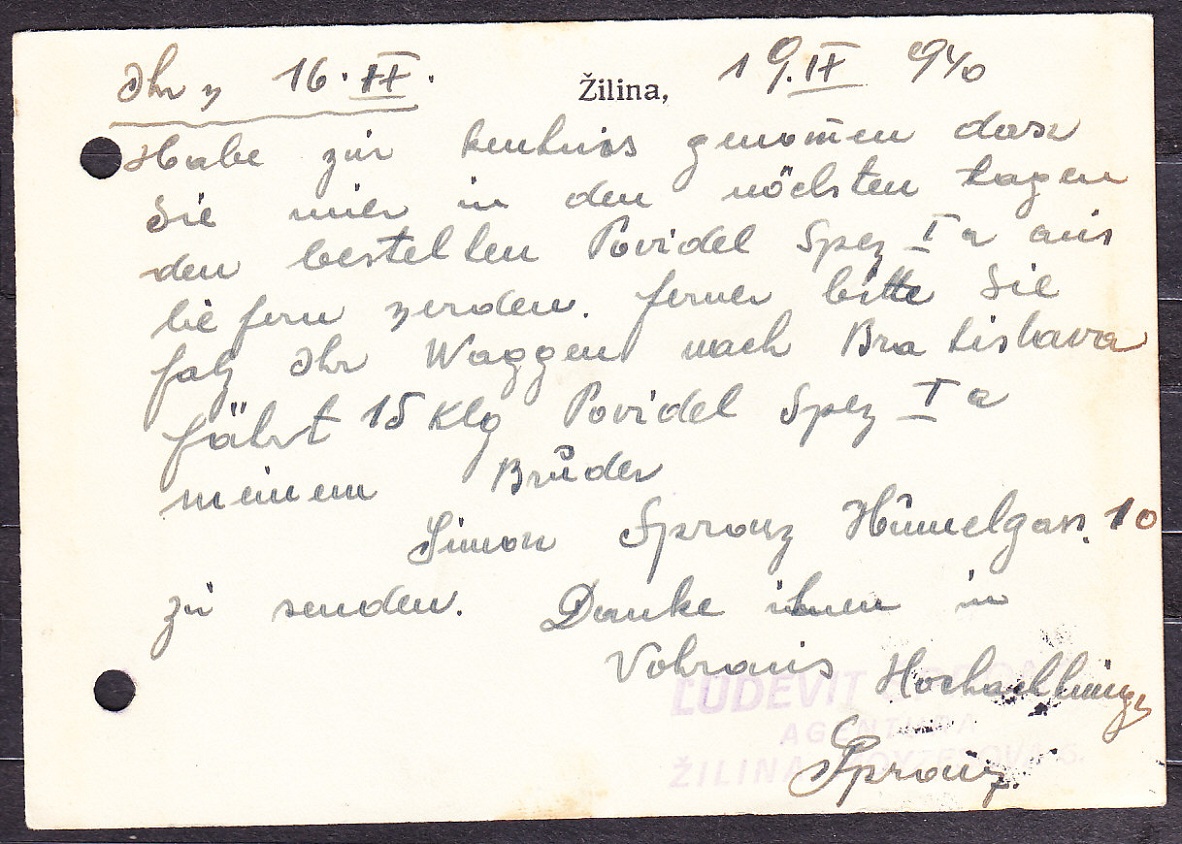 Ihr v 16. II.
Žilina, 19. II 940
Habe zur kentniss genommen dass
Sie mier in den nöchsten tagen
den bestellten Povidel Spez Ia aus
liefern zerden. ferner bitte Sie
falz Ihr Waggen nach Bratislava
fährt 15 Klg Povidel Spez Ia
meinem Bruder
Simon Spronz Hümelgass. 10
zu senden. Danke ihnen in
Vohraus Hochachtungs
ĽUDEVÍT
AGENTÚRA
Spronz.
ŽILINA,